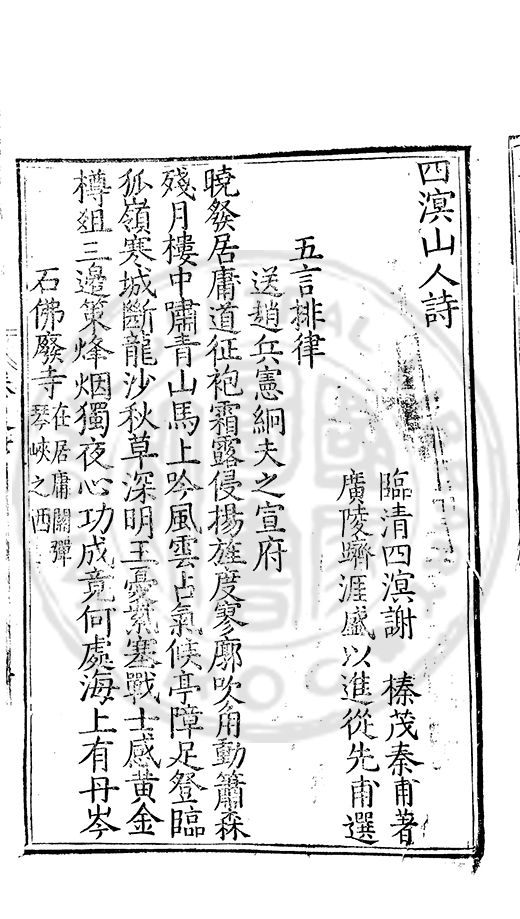 四溟山人詩
臨清四溟謝榛茂秦甫著
廣陵躋涯盛以進從先甫選
五言排律
送趙兵憲絅夫之宣府
曉發居庸道征袍霜露侵揚旌度寥廓吹角動簫森
殘月樓中嘯青山馬上吟風雲占氣候亭障足登臨
狐嶺寒城斷龍沙秋草深明王憂紫塞戰士感黃金
樽俎三邊策烽烟獨夜心功成竟何處海上有丹岑
石佛廢寺在居庸關彈
琴峽之西